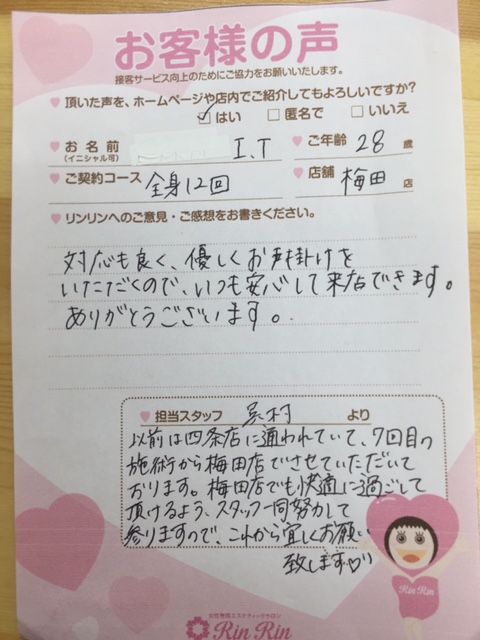 お客様の声
接客サービス向上のためにご協力をお願いいたします。
頂いた声を、ホームページや店内でご紹介してもよろしいですか?
はい 匿名で いいえ
お名前 (イニシャル可) I.T ご年齢 28 歳
ご契約コース 全身12回 店舗 梅田 店
リンリンへのご意見・ご感想をお書きください。
対応も良く、優しくお声掛けを
いただくので、いつも安心して来店できます。
ありがとうございます。
担当スタッフ 村 より
以前は四条店に通われていて、7回目の
施術から梅田店でさせていただいて
おります。梅田店でも快適に過ごして
頂けるよう、スタッフ一同努力して
参りますので、これから宜しくお願い
致します♡
Rin Rin
女性専用エステティックサロン
Rin Rin